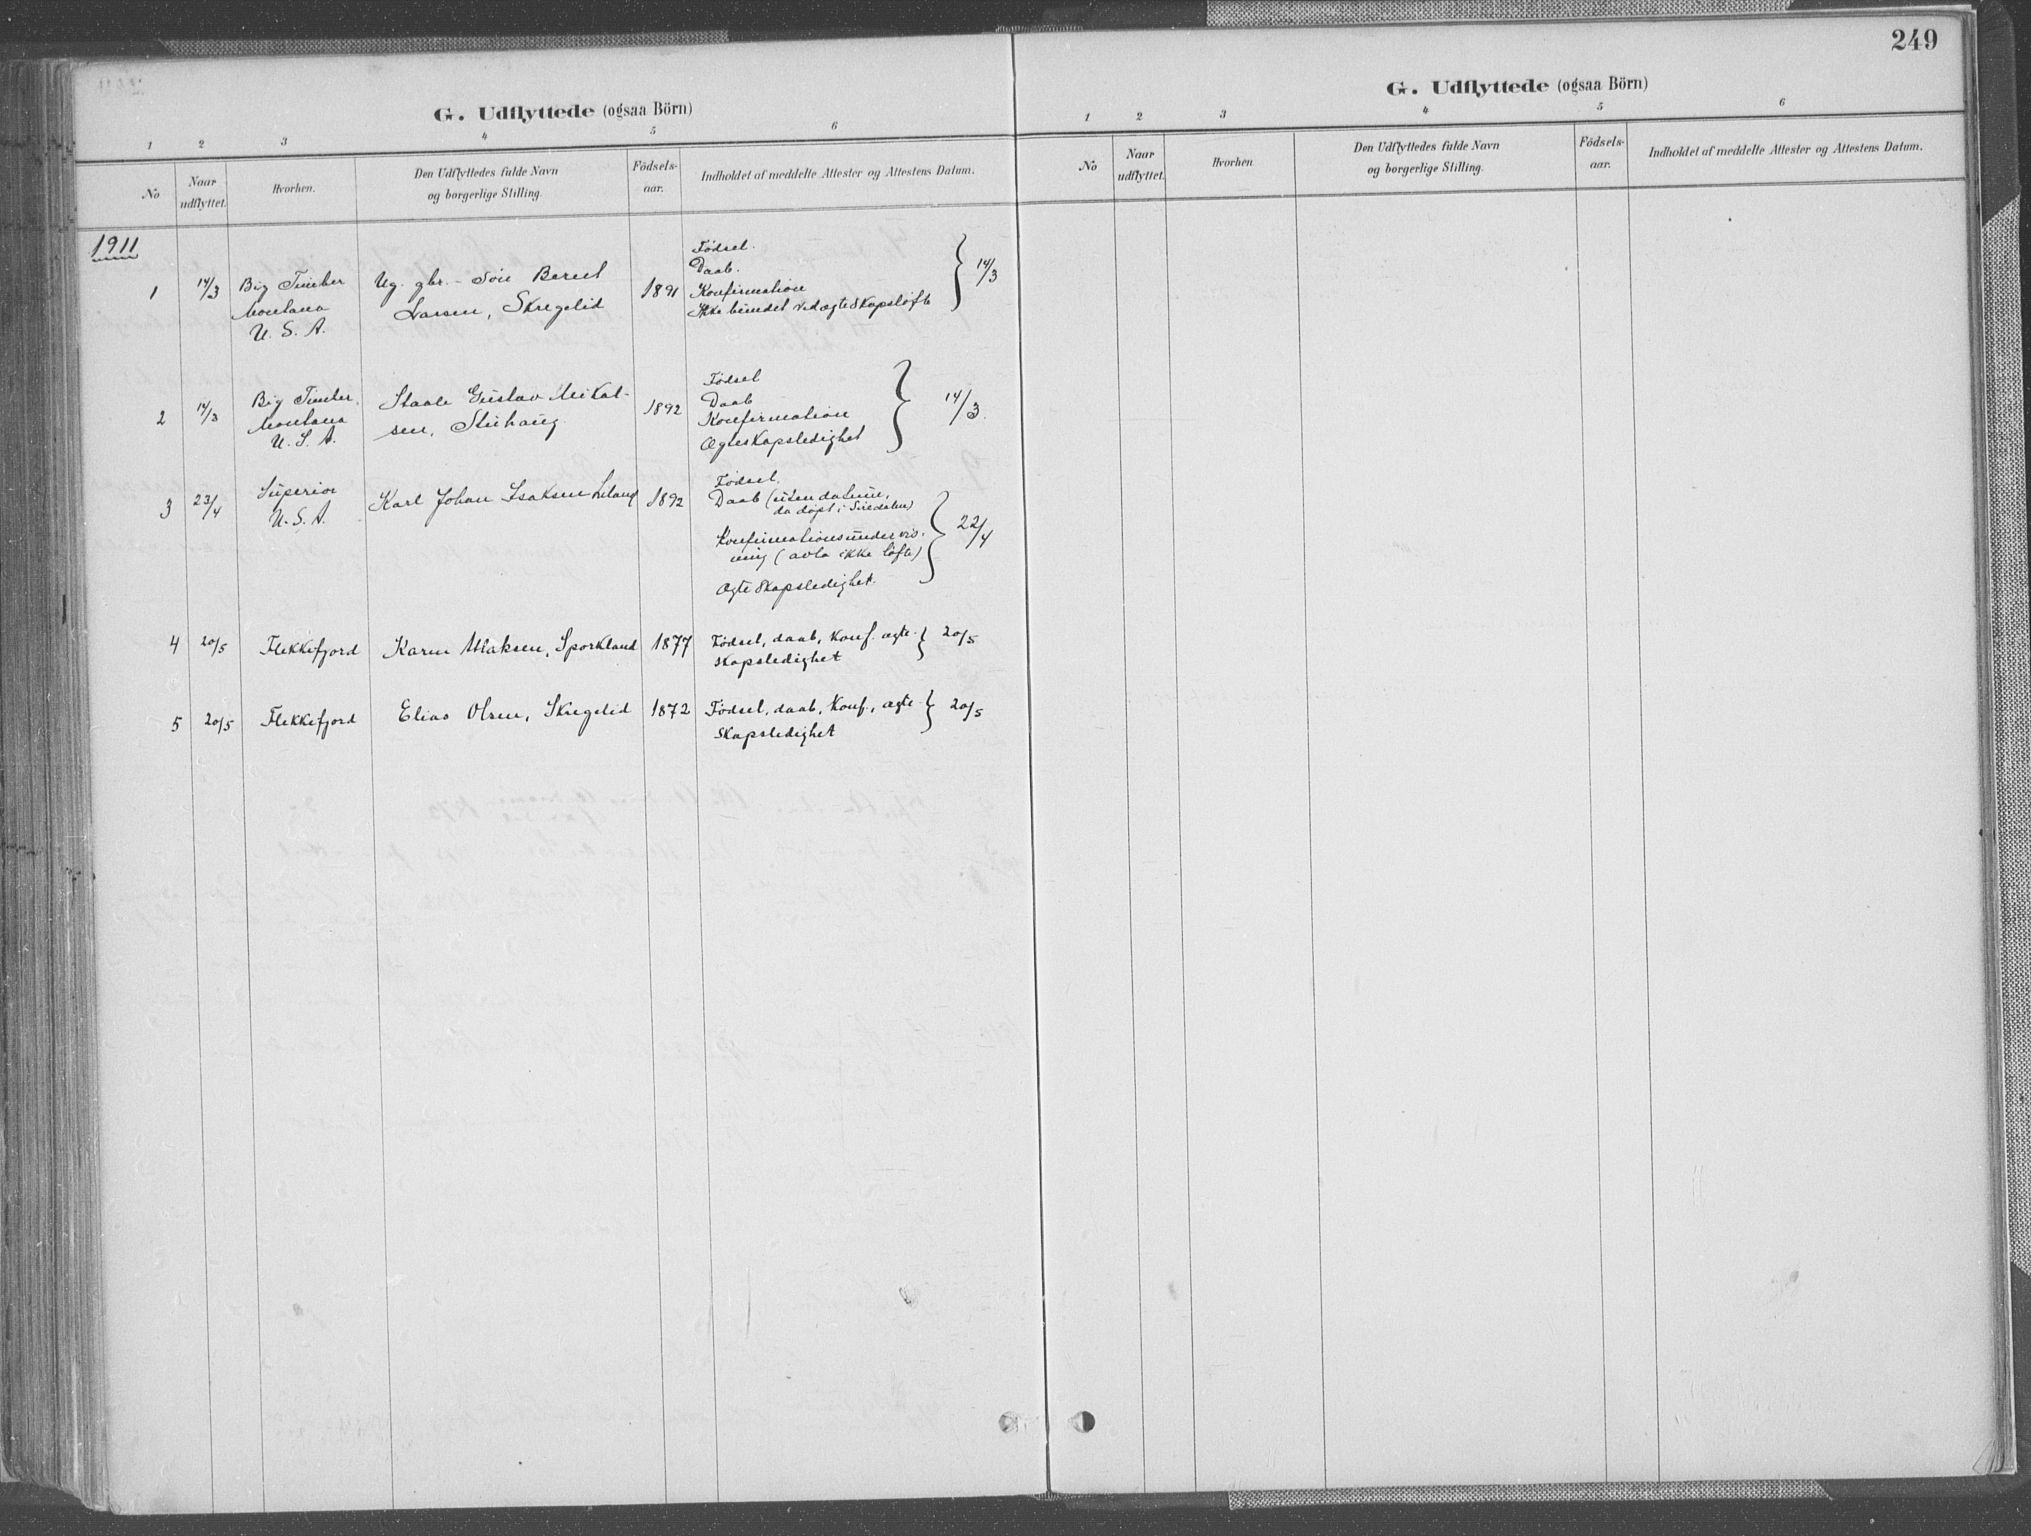 249
G. Udflyttede (ogsaa Börn)
1 2 3 4 5 6
No
Naar udflyttet.
Hvorhen.
Den Udflyttedes fulde Navn
og borgerlige Stilling.
Födsels-
aar.
Indholdet af meddelte Attester og Attestens Datum.
1911
1 14/3 Big Timber
Montana
U. S. A.
Ug. gbr. - søn Berent
Larsen, Skregelid
1891
Fødsel.
Daab.
Konfirmation
Ikke bundet ved ægteskapsløfte
14/3
2 14/3 Big Timber,
Montana
U. S. A.
Staale Gustav Mikal-
sen, Stuhaug
1892
Fødsel
Daab
Konfirmation
Ægteskapsledighet
14/3.
3 23/4 Superior
U. S. A.
Karl Johan Isaksen Liland
1892
Fødsel,
Daab (uten datum,
da døpt i Siredalen)
Konfirmationsundervis-
ning (avla ikke løfte)
Ægteskapsledighet.
22/4
4 20/5 Flekkefjord Karen Maksen, Sporkland 1877 Fødsel, daab, konf. ægte-
skapsledighet
20/5
5 20/5 Flekkefjord Elias Olsen, Skregelid 1872 Fødsel, daab, konf., ægte-
skapsledighet
20/5
G. Udflyttede (ogsaa Börn)
1 2 3 4 5 6
No
Naar
udflyttet.
Hvorhen
Den Udflyttedes fulde Navn
og borgerlige Stilling.
Födsels-
aar.
Indholdet af meddelte Attester og Attestens Datum.